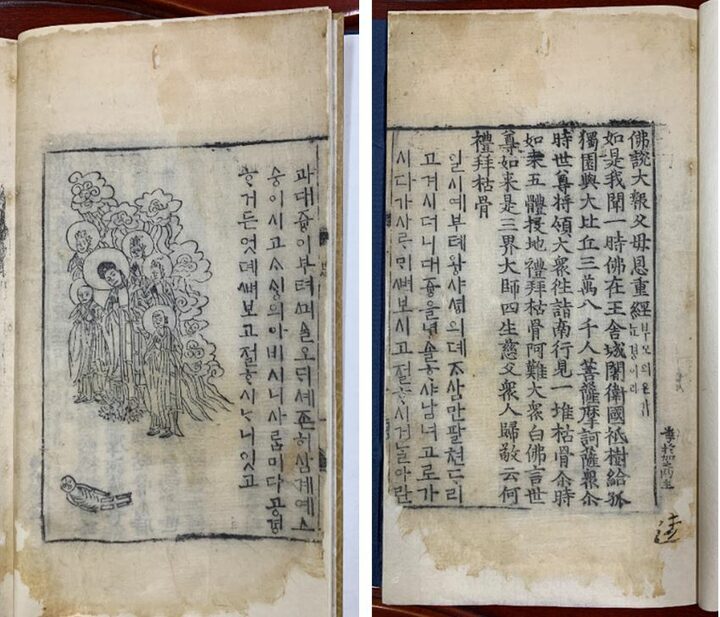 佛說大報父母恩重經
如是我聞一時佛在王舍城闍衛國祗樹給孤
獨園與大比丘三萬八千人菩薩摩訶薩衆尒
時世尊將領大衆往詣南行見一堆枯骨尒時
如来五體投地禮拜枯骨阿難大衆白佛言世
尊如来是三界大師四生慈父衆人歸敬云何
禮拜枯骨
일시예부톄왕샤셩의뎨ᄌᆞ삼만팔쳔ᄃᆞ리
고겨시더니대즁을녕솔ᄒᆞ샤남녀고로가
시다가사ᄅᆞᆷ의ᄲᅧ보시고절ᄒᆞ시거ᄂᆞᆯ아란
과대즁이부텨ᄭᅴᄉᆞᆯ오ᄃᆡ세존허삼계예스
승이시고ᄉᆞᄉᆡᆼ의아비시니사ᄅᆞᆷ마다공경
ᄒᆞ거든엇뎨ᄲᅧ보고절ᄒᆞ시ᄂᆞ니잇고